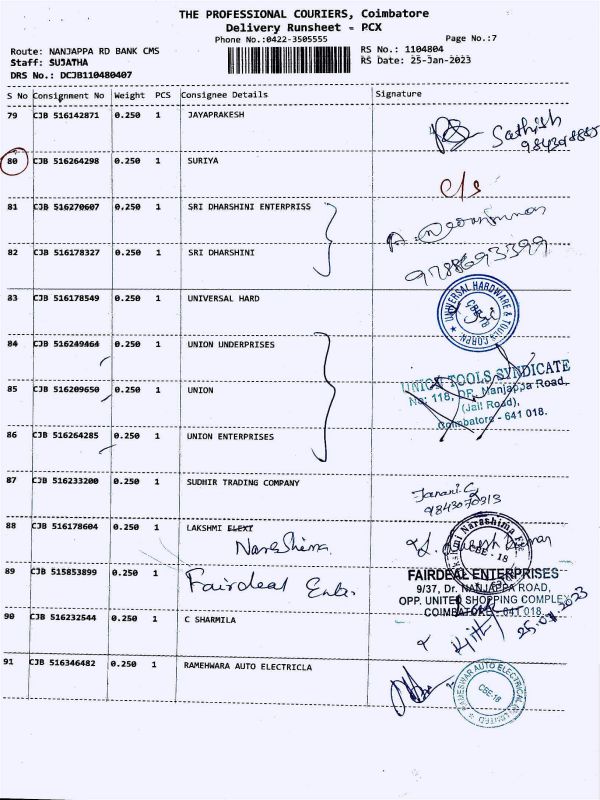 THE PROFESSIONAL COURIERS, Coimbatore
Delivery Runsheet - PCX
Phone No.:0422-3505555 Page No.:7
Route: NANJAPPA RD BANK CMS RS No.: 1104804
Staff: SUJATHA RS Date: 25-Jan-2023
DRS No.: DCJB110480407
S No Consignment No Weight PCS Consignee Details Signature
79 CJB 516142871 0.250 1 JAYAPRAKESH
Sathish
80 CJB 516264298 0.250 1 SURIYA
c/s
81 CJB 516270607 0.250 1 SRI DHARSHINI ENTERPRISS
82 CJB 516178327 0.250 1 SRI DHARSHINI
9788693399
83 CJB 516178549 0.250 1 UNIVERSAL HARD
UNIVERSAL HARDWARE & TOOLS CORPN.
CBE-18
84 CJB 516249464 0.250 1 UNION UNDERPRISES
UNION TOOLS SYNDICATE
No: 118, DR. Nanjappa Road,
(Jail Road),
Coimbatore - 641 018.
85 CJB 516209650 0.250 1 UNION
86 CJB 516264285 0.250 1 UNION ENTERPRISES
87 CJB 516233200 0.250 1 SUDHIR TRADING COMPANY
Janani.G
9843070913
88 CJB 516178604 0.250 1 LAKSHMI FLEXI
Narashima
CBE - 18
89 CJB 515853899 0.250 1 Fairdeal Ents.
FAIRDEAL ENTERPRISES
9/37, Dr. NANJAPPA ROAD,
OPP. UNITED SHOPPING COMPLEX
COIMBATORE - 641 018.
90 CJB 516232544 0.250 1 C SHARMILA
25.01.2023
91 CJB 516346482 0.250 1 RAMEHWARA AUTO ELECTRICLA
CBE-18